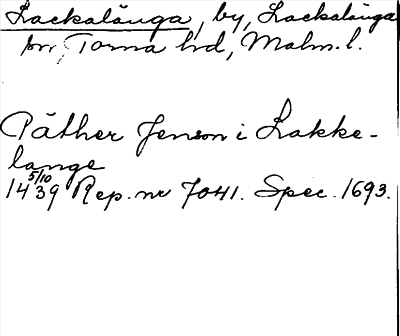 Lackalänga, by, Lackalänga
sn, Torna hd, Malm. l.
Päther Jenson i Lakke-
lange
5/10
1439 Rep. nr 7041. Spec. 1693.